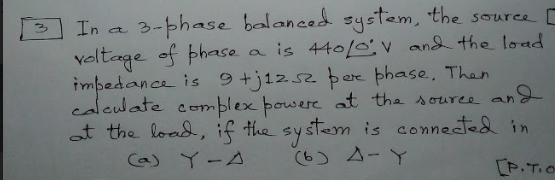 3 In a 3-phase balanced system, the source [
voltage of phase a is 440∠0° V and the load
impedance is 9+j12 Ω per phase. Then
calculate complex power at the source and
at the load, if the system is connected in
(a) Y-Δ (b) Δ-Y
[P.T.O